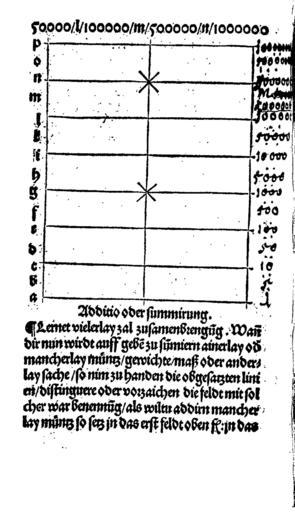 50000/l/100000/m/500000/n/1000000
p
o
n
m
l
k
i
h
g
f
e
d
c
b
a
100000
50000
10000
5000
1000
500
100
50
10
5
1
Additio oder summirung.
¶Lernet vielerlay zal zusamenbrengūg. Wañ
dir nun wirdt auff gebē zu sūmiern ainerlay od
mancherlay müntz/gewichte/maß oder ander-
lay sache/so nim zu handen die obgesatzten lini
en/distinguere oder vorzaichen die feldt mit sol
cher war benennūg/als wiltu addirn mancher
lay müntz so setz in das erst feldt oben fl. in das